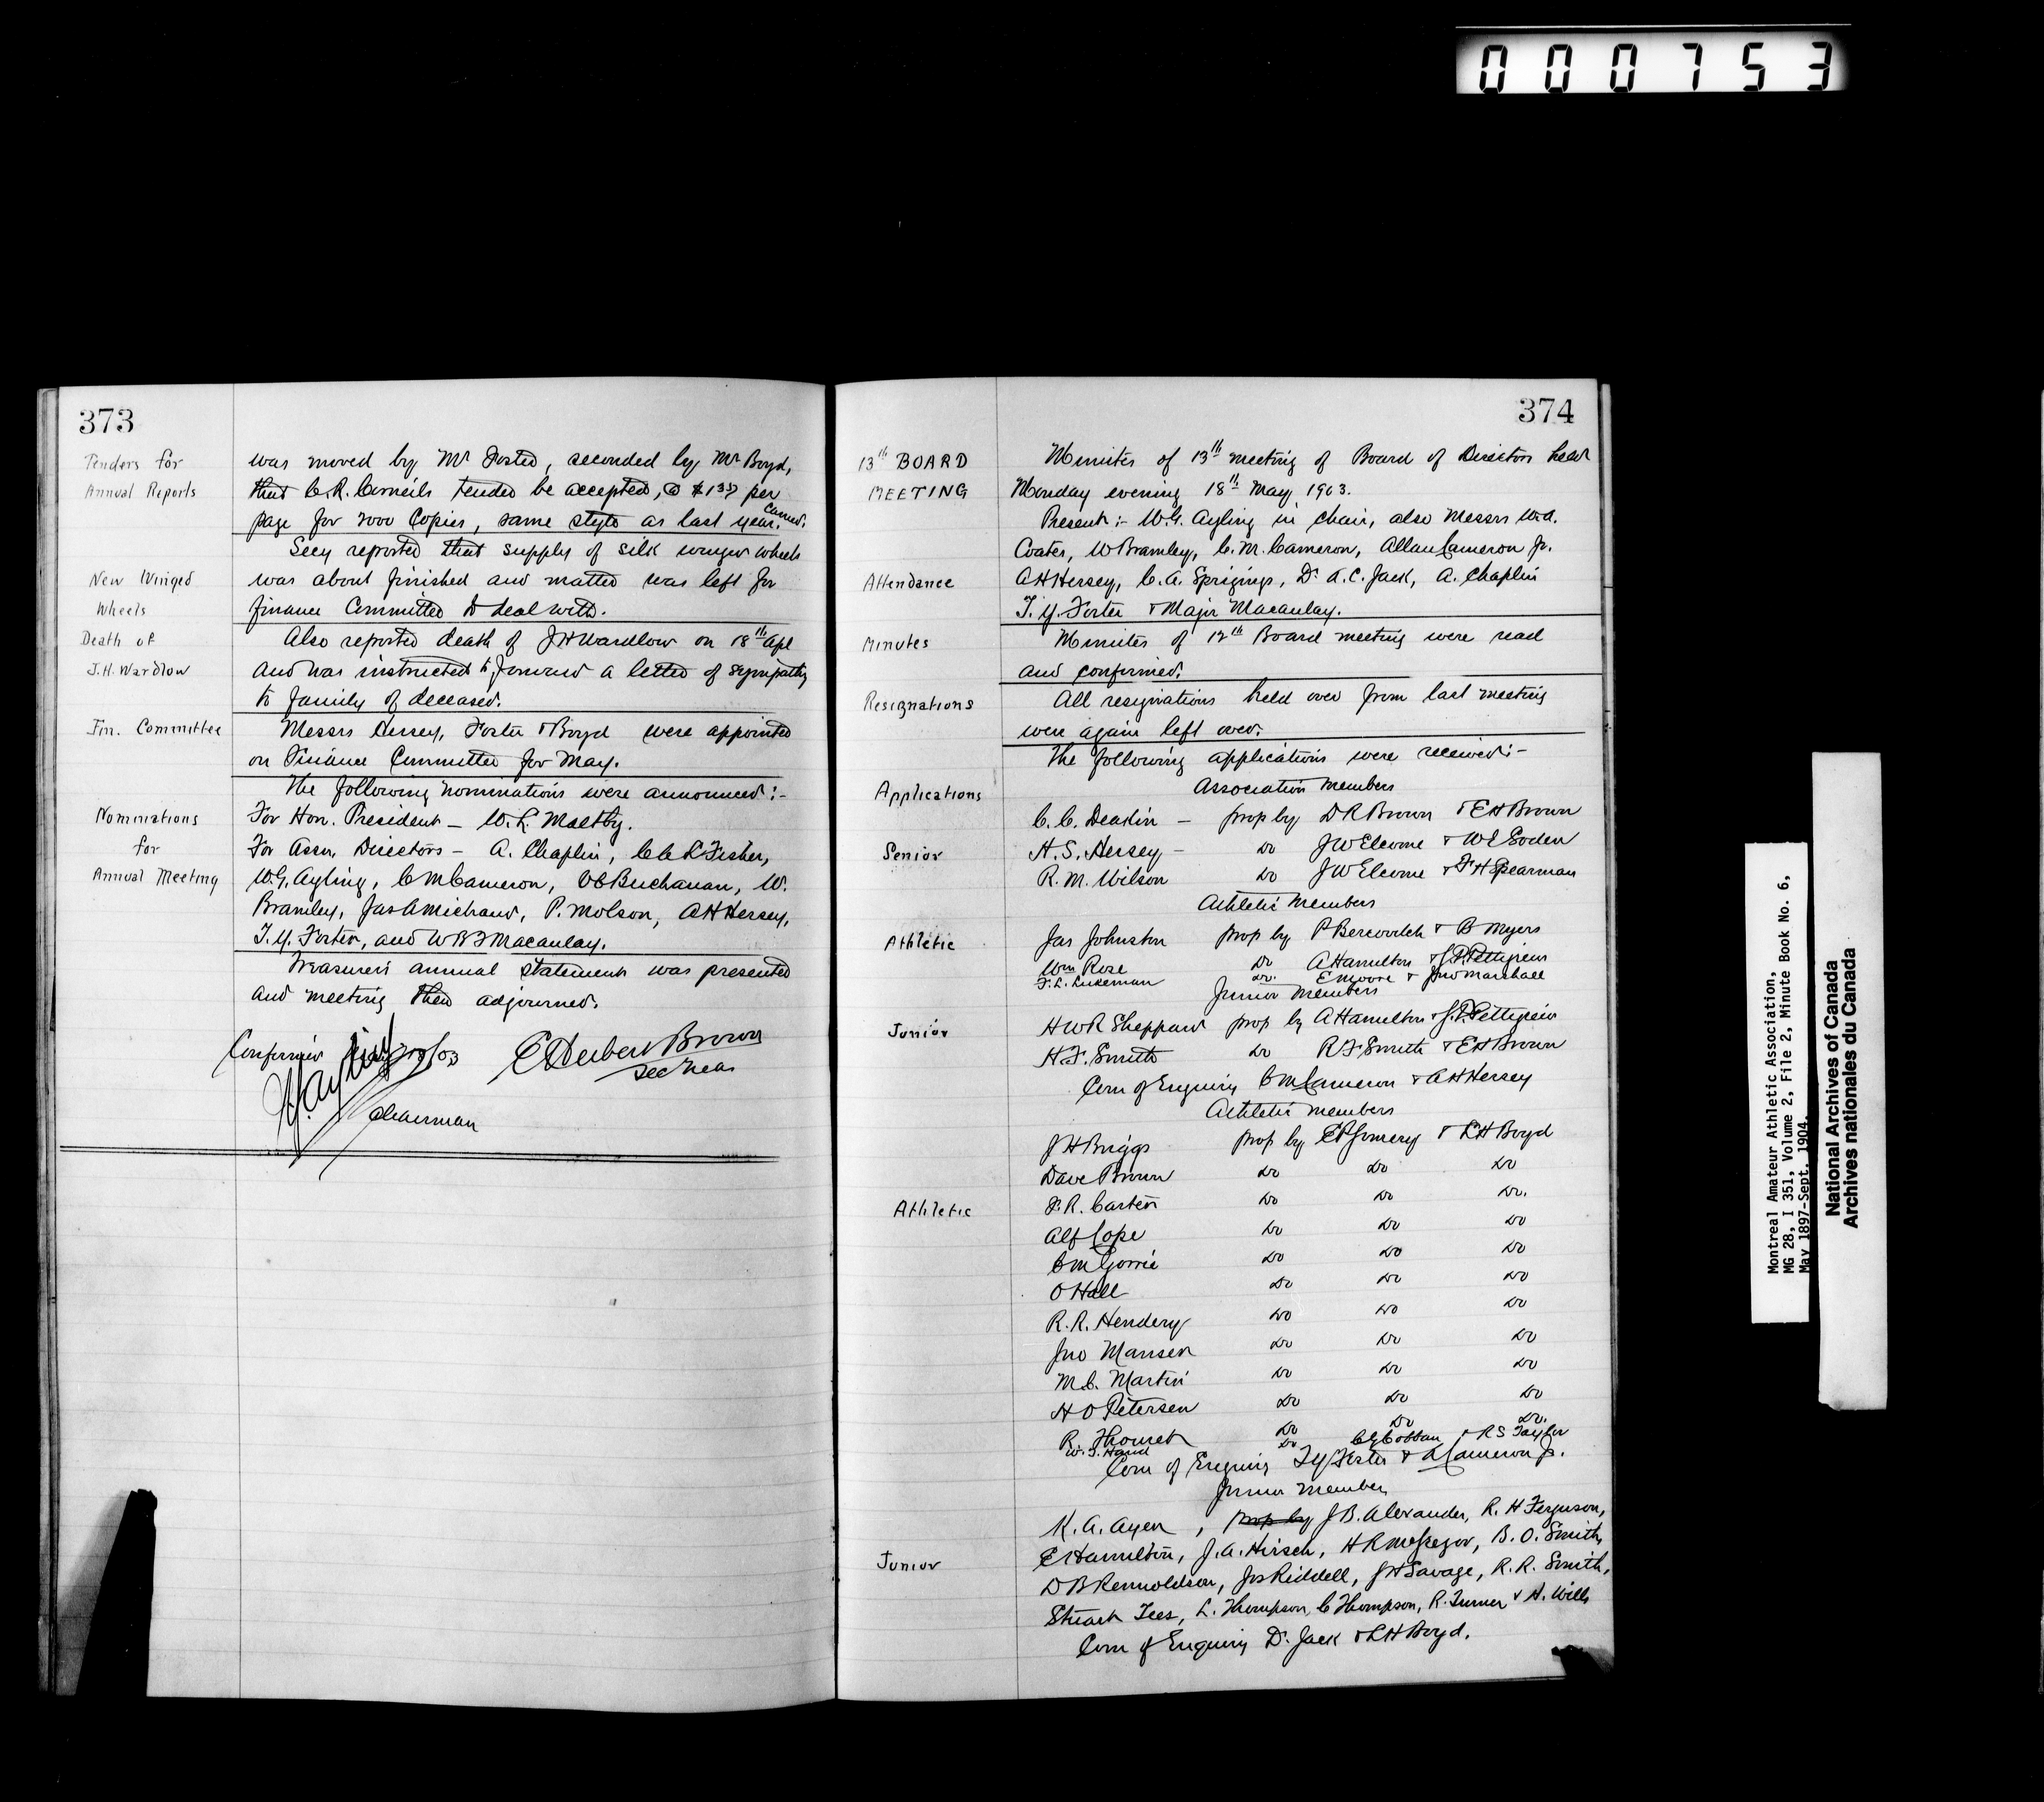 000753
373
Tenders for
Annual Reports
was moved by Mr Foster, seconded by Mr Boyd,
that C.R. Corneils tender be accepted, @ $1.35 per
page for 2000 Copies, same style as last year. Carried.
Secy reported that supply of silk winged wheels
New Winged
Wheels
was about finished and matter was left for
finance Committee to deal with.
Death of
J.H. Wardlow
Also reported death of J H Wardlow on 18th Apl
and was instructed to forward a letter of sympathy
to family of deceased.
Fin. Committee
Messrs Hersey, Foster & Boyd were appointed
on Finance Committee for May.
The following nominations were announced:-
Nominations
for
Annual Meeting
For Hon. President - W. L. Maltby.
For Assn. Directors - A. Chaplin, C C L Fisher,
W.G. Ayling, C M Cameron, V C Buchanan, W.
Bramley, Jas A Michaud, P. Molson, A H Hersey,
T.Y. Foster, and W B T Macaulay.
Treasurers annual statement was presented
and meeting then adjourned.
Confirmed May 18/03
E Herbert Brown
Sec Treas
W.G. Ayling
Chairman
374
13th BOARD
MEETING
Minutes of 13th meeting of Board of Directors held
Monday evening 18th May 1903.
Present:- W.G. Ayling in chair, also Messrs W.A.
Coates, W Bramley, C.M. Cameron, Allan Cameron Jr.
Attendance
A H Hersey, C.A. Sprigings, Dr A.C. Jack, A. Chaplin
T.Y. Foster & Major Macaulay.
Minutes
Minutes of 12th Board meeting were read
and confirmed.
Resignations
All resignations held over from last meeting
were again left over.
The following applications were received:-
Applications
Association Members
C.C. Deakin - prop by D R Brown & E H Brown
Senior
H.S. Hersey - Do J W Elcome & W E Soden
R.M. Wilson Do J W Elcome & F H Spearman
Athletic Members
Athletic
Jas Johnston prop by P Bercovitch & B Myers
Wm Rose Do A Hamilton & J.P. Pettigrew
F.L. Lukeman Do. E Moore & Jno Marshall
Junior Members
Junior
H W R Sheppard prop by A Hamilton & J.P. Pettigrew
H.F. Smith Do R F Smith & E H Brown
Com of Enquiry C M Cameron & A H Hersey
Athletic Members
J H Briggs prop by E P Gomery & L H Boyd
Dave Brown Do Do Do
Athletic
F.R. Carter Do Do Do.
Alf Cope Do Do Do
C M Gorrie Do Do Do
O Hall Do Do Do
R.R. Hendery Do Do Do
Jno Mansen Do Do Do
M.C. Martin Do Do Do
H O Petersen Do Do Do
R. Thomet Do Do Do.
W.T. Hand Do C G Cobban & R S Taylor
Com of Enquiry T Y Foster & A Cameron Jr.
Junior Member
K.A. Ayer, prop by J B. Alexander, R.H Ferguson,
Junior
E Hamilton, J.A. Hirsch, H R McGregor, B.O. Smith,
D B Rennoldson, Jos Riddell, J H Savage, R.R. Smith,
Stuart Tees, L. Thompson, C Thompson, R. Turner & H. Wills
Com of Enquiry Dr Jack & L H Boyd.
Montreal Amateur Athletic Association,
MG 28, I 351, Volume 2, File 2, Minute Book No. 6,
May 1897-Sept. 1904.
National Archives of Canada
Archives nationales du Canada